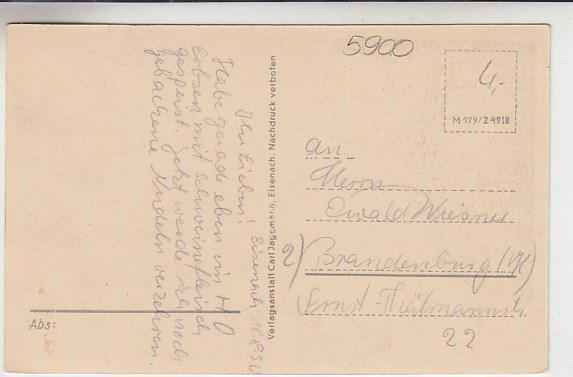 5900
4,-
M 199/24918
Eisenach, 16.8.50
Ihr Lieben!
Habe gerade eben im HO
Erbsen mit Schweinefleisch
gespeist. Jetzt werde ich noch
gebackene Nudeln verzehren.
Abs:
Verlagsanstalt Carl Jagemann, Eisenach. Nachdruck verboten
An
Herrn
Ewald Wiesner
2) Brandenburg (H)
Ernst-Thälmannstr.
22